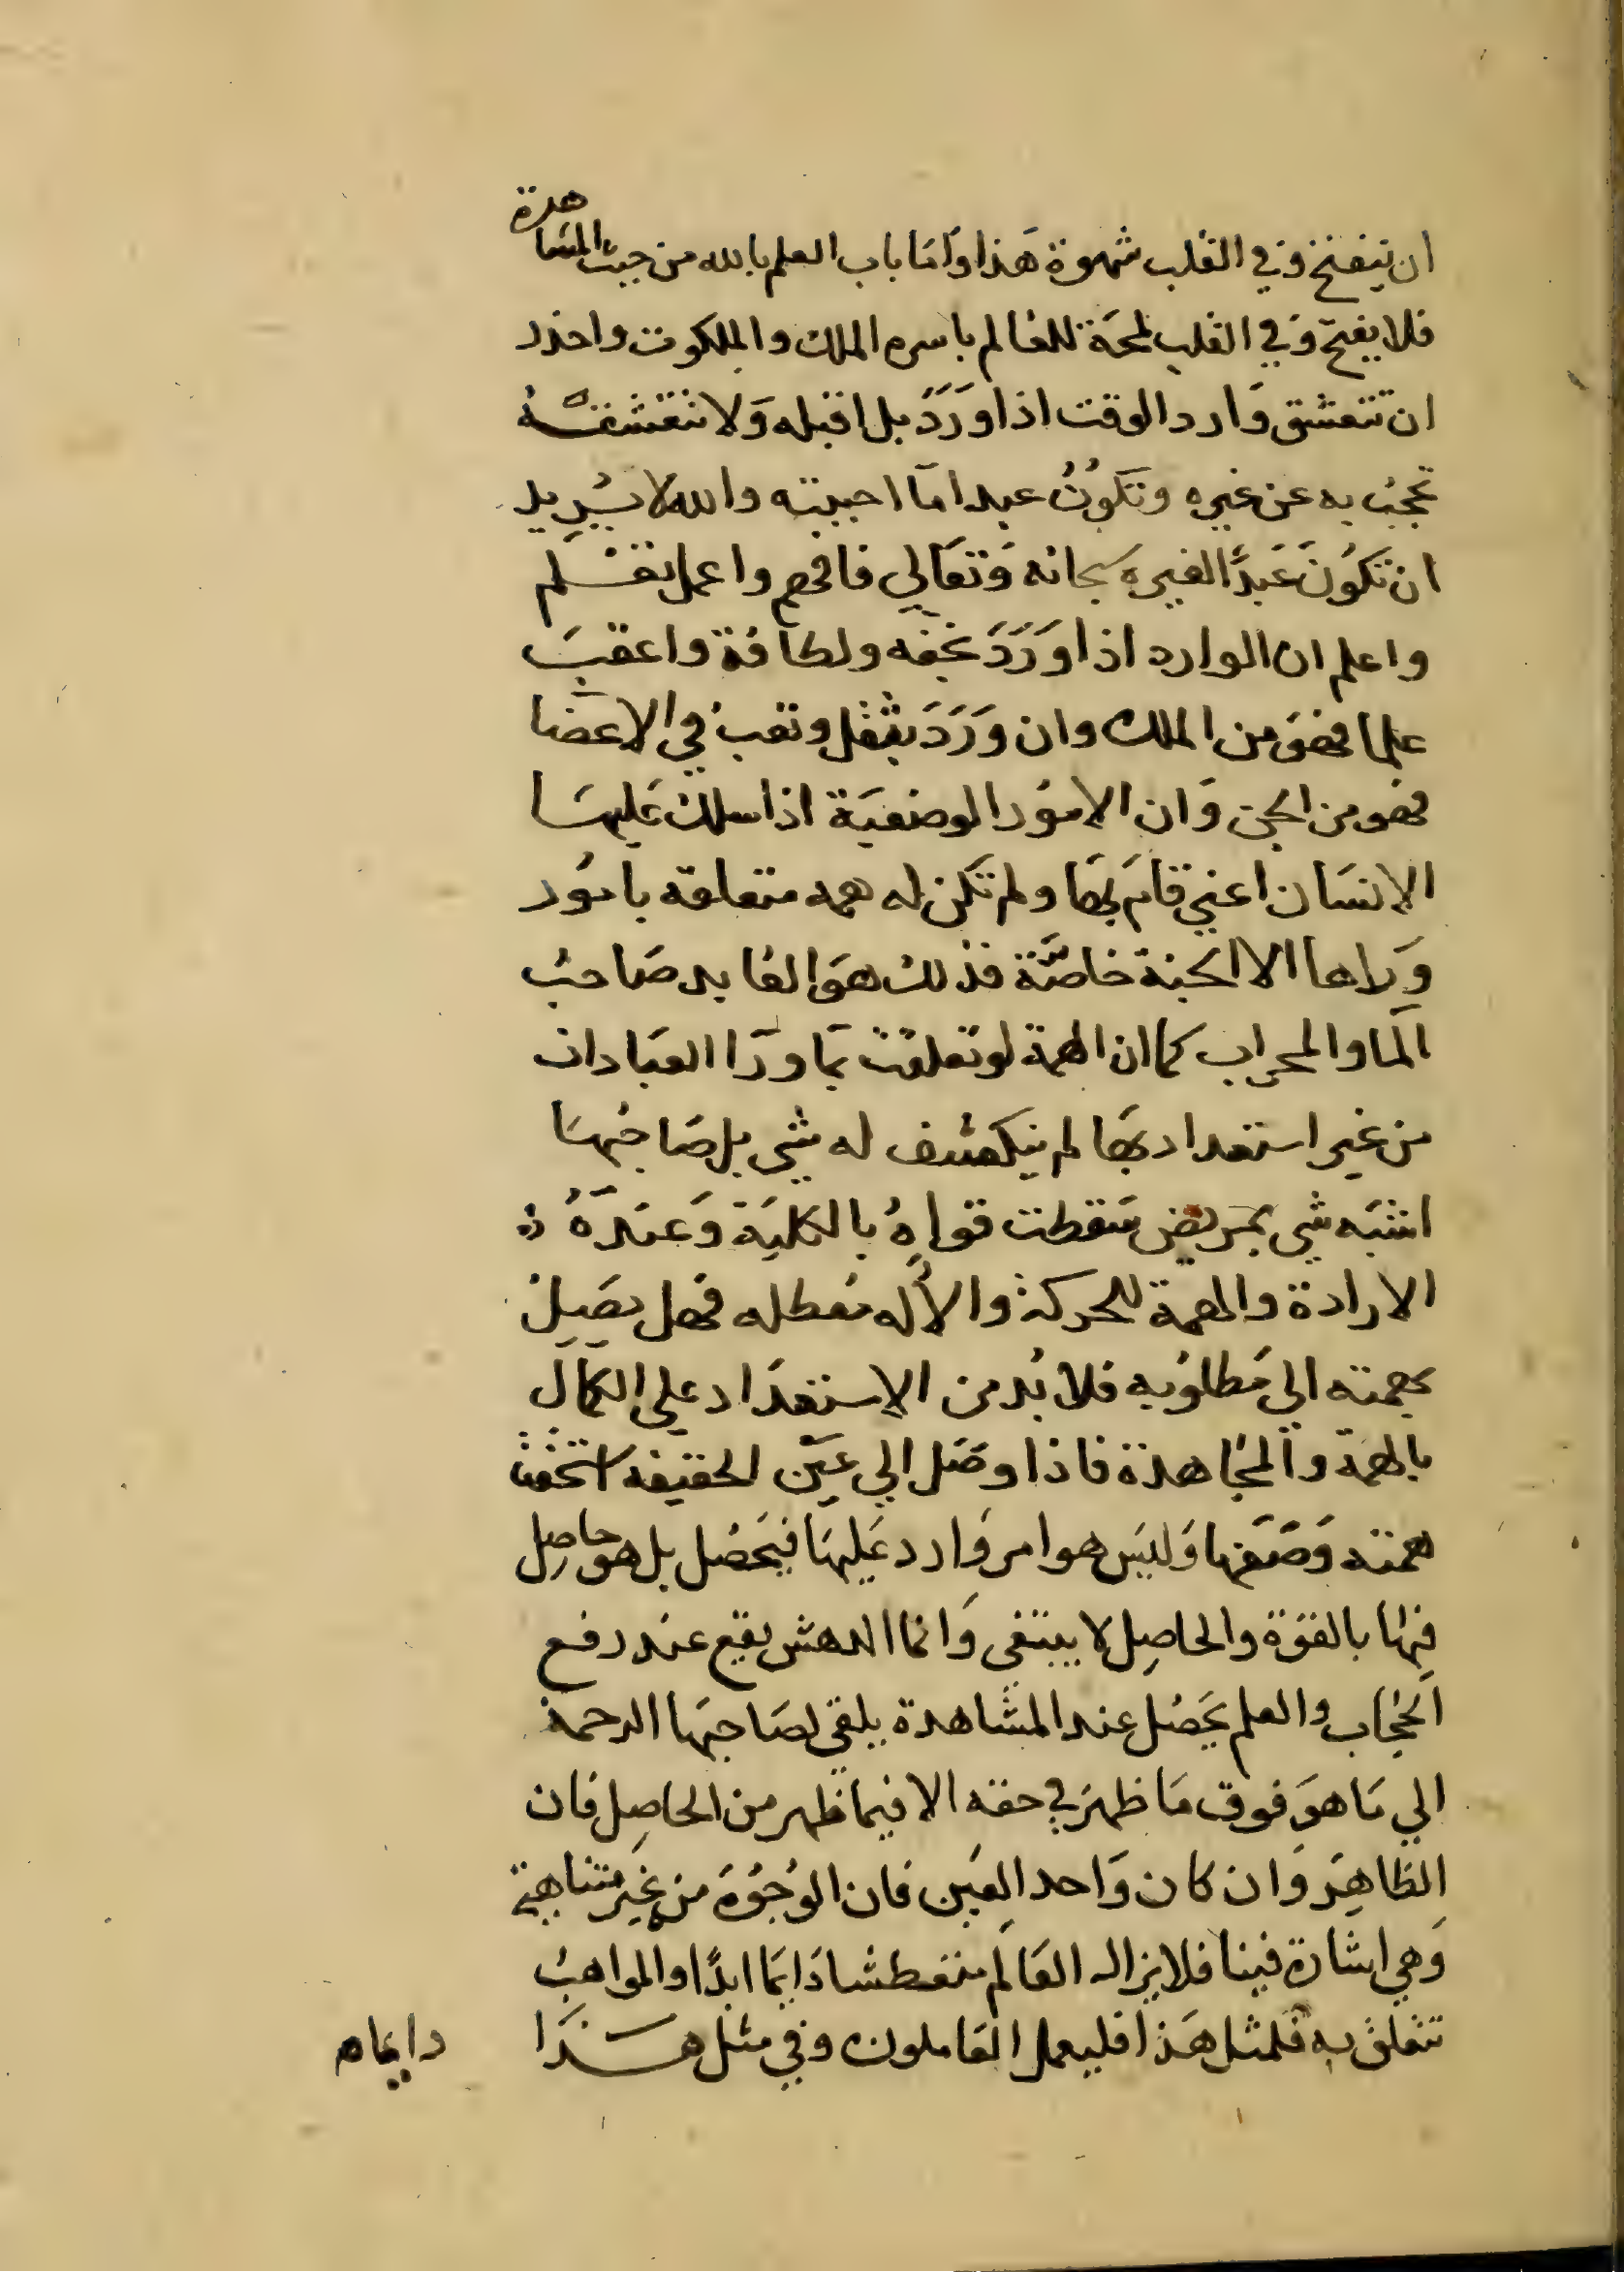 ان ينفتح وفي القلب شهوة هذا واما باب العلم بالله من حيث المشاهدة
فلا يفتح وفي القلب لمحة للعالم باسره الملك والملكوت واحذر
ان تتعشق وارد الوقت اذا ورد بل اقبله ولا تتعشقه
تحجب به عن غيره وتكون عبد اما احببته والله لا يريد
ان تكون عبدا لغيره سبحانه وتعالي فافهم واعمل تغنم
واعلم ان الوارد اذا ورد بخفه ولطافة واعقب
علما فهو من الملك وان ورد بثقل وتعب في الاعضا
فهو من الجن وان الامور الوضعية اذا سلك عليها
الانسان اعني قام بها ولم تكن له همه متعلقه بامور
وراها الا الجنة خاصة فذلك هو العابد صاحب
الما والمحراب كما ان الهمة لو تعلقت بما ورا العبادات
من غير استعداد بها لم ينكشف له شي بل صاحبها
اشبه شي بمريض سقطت قواه بالكلية وعنده
الارادة والهمة للحركة والآله معطله فهل يصل
بهمته الي مطلوبه فلا بد من الاستعداد علي الكمال
بالهمة والمجاهدة فاذا وصل الي عين الحقيقه
همته وليس هو امر وارد عليها فيحصل بل هو حاصل
فيها بالقوة والحاصل لا يبتغي وانما الدهش يقع عند رفع
الحجاب والعلم يحصل عند المشاهدة يلقي لصاحبها الرحمة
الي ما هو فوق ما ظهر في حقه الا فيما ظهر من الحاصل فان
الظاهر وان كان واحد العين فان الوجوه من غير متناهية
وهي اشارة فينا فلا يزال العالم متعطشا دايما ابدا والمواهب
تتعلق به فلمثل هذا فليعمل العاملون وفي مثل هذا